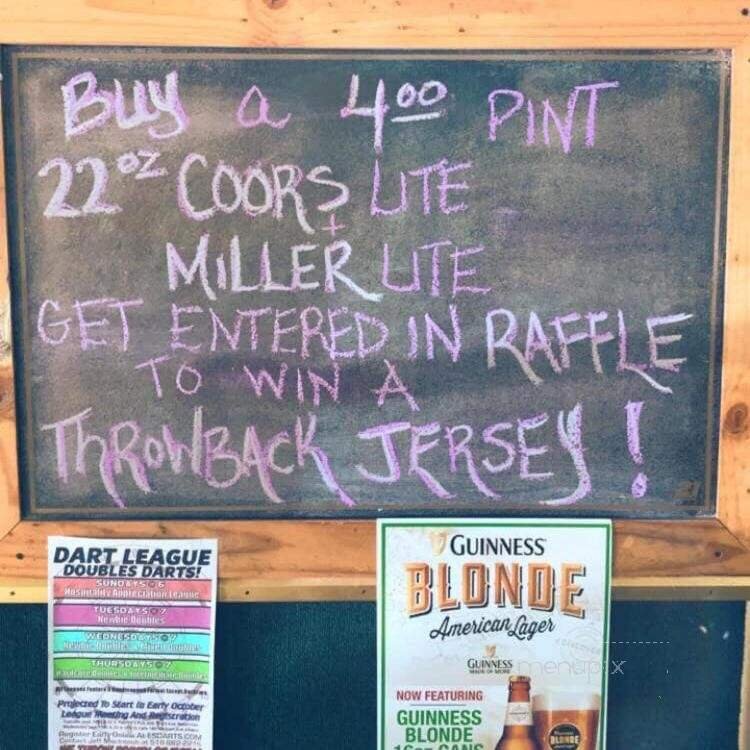 Buy a 4.00 PINT
22oz COORS LITE
+
MILLER LITE
GET ENTERED IN RAFFLE
TO WIN A
THROWBACK JERSEY!
DART LEAGUE
DOUBLES DARTS!
SUNDAYS @ 6
Hospitality Appreciation League
TUESDAYS @ 7
Newbie Doubles
WEDNESDAYS @ 7
THURSDAYS @ 7
Projected To Start in Early October
League Meeting And Registration
GUINNESS
BLONDE
American Lager
GUINNESS
MADE OF MORE
NOW FEATURING
GUINNESS
BLONDE
16oz CANS
BLONDE
menupix